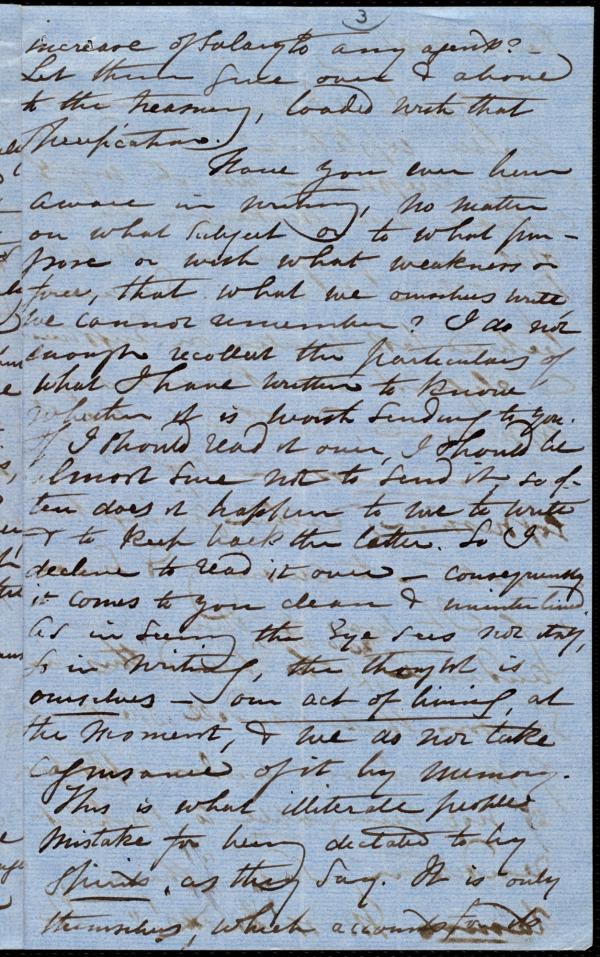 3
increase of salary to any agents?
Let them give over & above
to the treasury, loaded with that
specification.
Have you ever been
aware in writing, no matter
on what subject or to what pur-
pose or with what weakness or
force, that what we ourselves write
we cannot remember? I do not
enough recollect the particulars of
what I have written to know
whether it is worth sending to you.
If I should read it over, I should be
almost sure not to send it, so of-
ten does it happen to me to write
& to keep back the letter. So I
decline to read it over - consequently
it comes to you clean & uninterlined.
As in seeing the Eye sees not itself,
so in writing, the thought is
ourselves - our act of living, at
the moment, & we do not take
cognisance of it by memory.
This is what illiterate people
mistake for being dictated to by
Spirits, as they say. It is only
themselves, which accounts for the